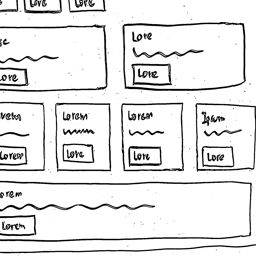 Lore Lore
Lore
Lore
Lore
Lorem Lorem Lorem
Lorem Lore Lore Lore
Lorem
Lorem